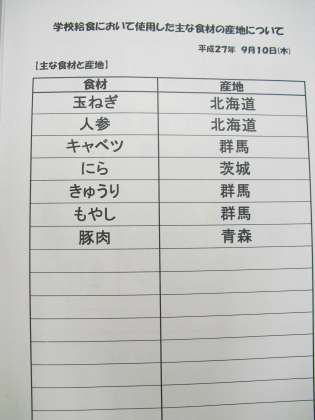 学校給食において使用した主な食材の産地について
平成27年 9月10日(木)
【主な食材と産地】
食材 産地
玉ねぎ 北海道
人参 北海道
キャベツ 群馬
にら 茨城
きゅうり 群馬
もやし 群馬
豚肉 青森